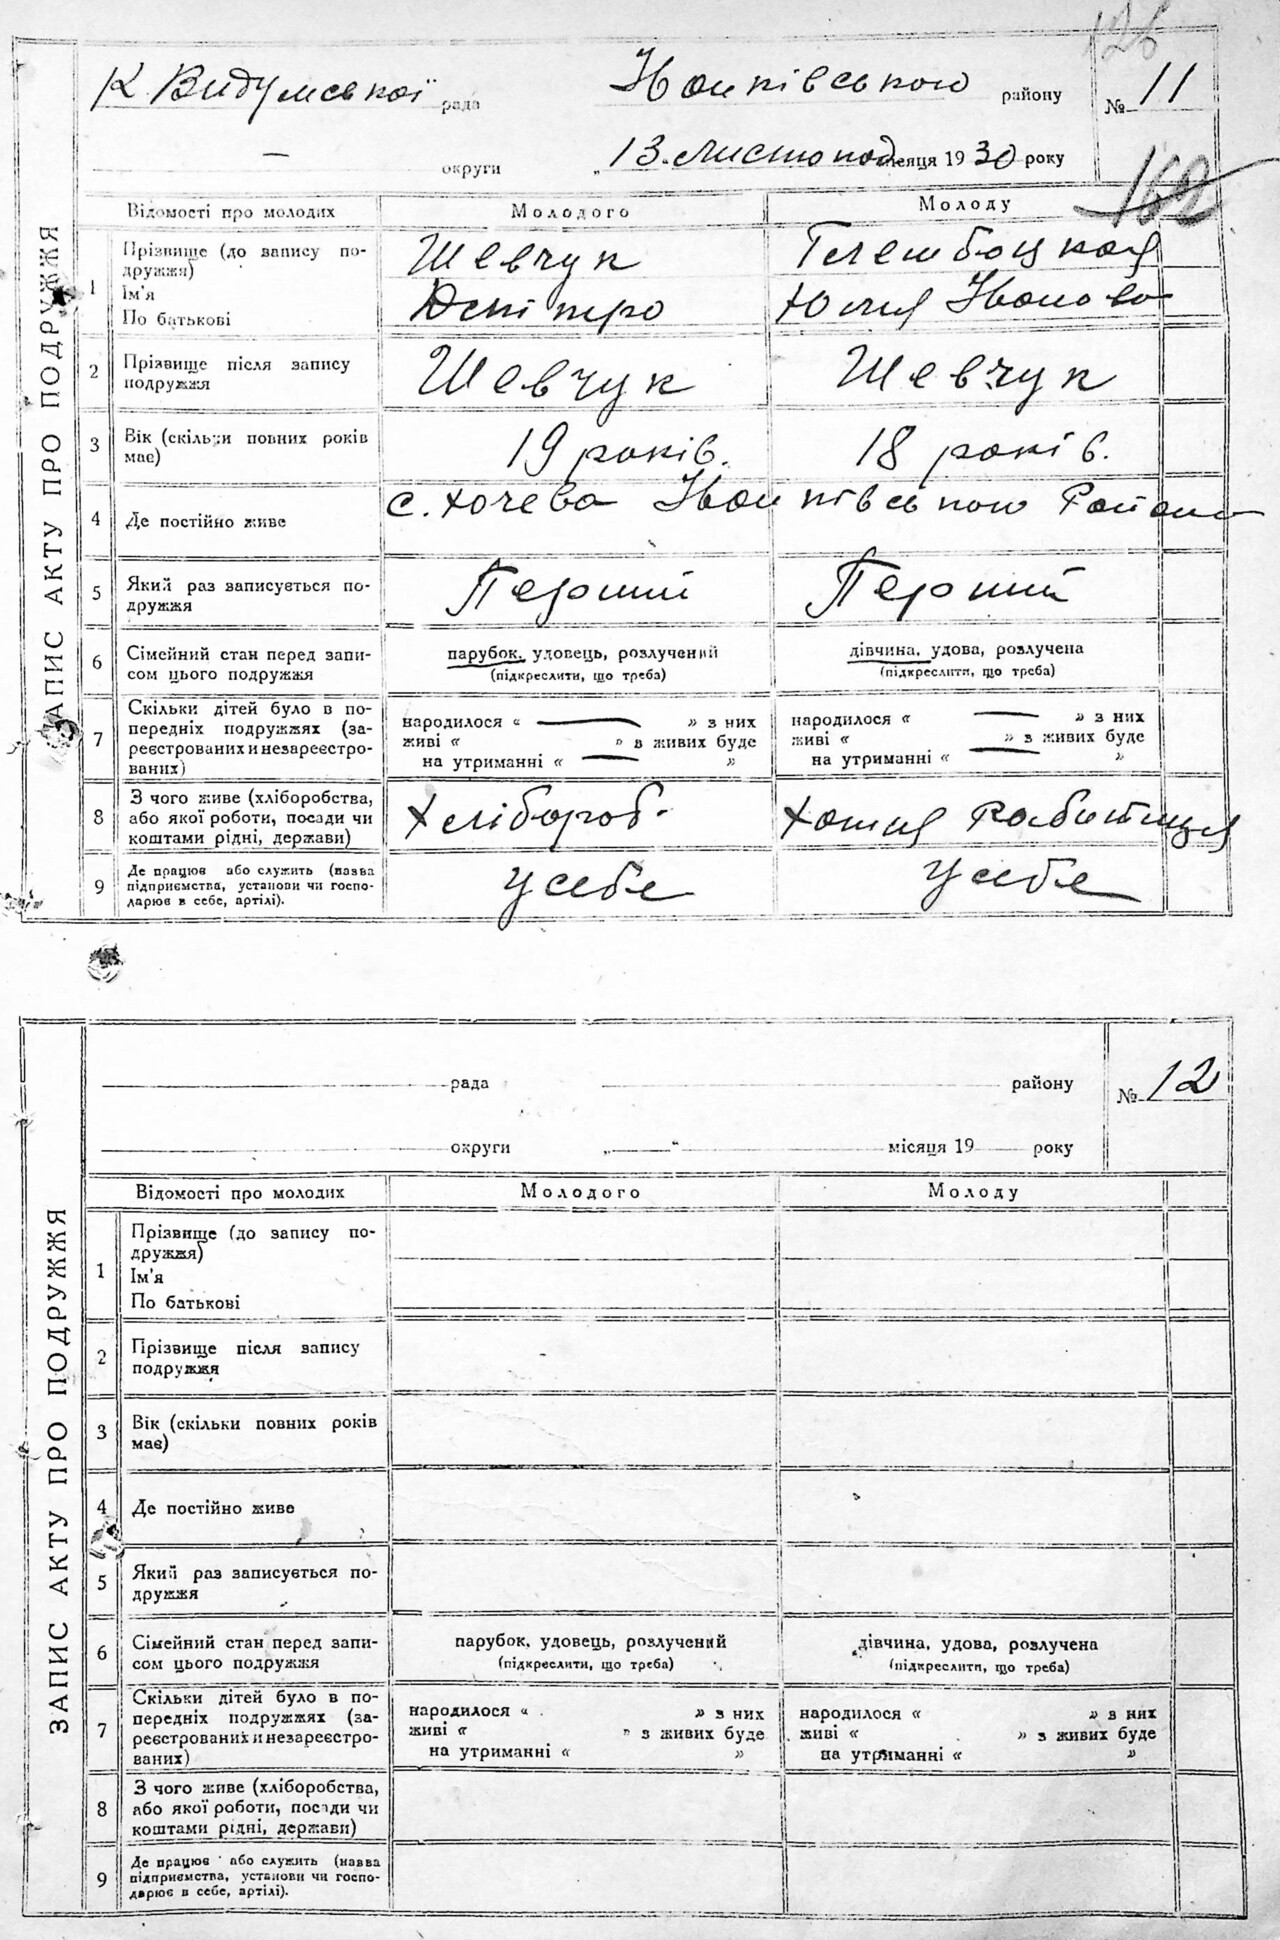 126
К. Видумської рада Іванківського району № 11
— округи „13. листопад місяця 1930 року
162
Відомості про молодих Молодого Молоду
ЗАПИС АКТУ ПРО ПОДРУЖЖЯ
1 Прізвище (до запису по- Шевчук
дружжя)
Ім'я Дмітро Юлія Іванова
По батькові
2 Прізвище після запису Шевчук Шевчук
подружжя
3 Вік (скільки повних років 19 років. 18 років.
має)
4 Де постійно живе с. Хочева Іванківського Району
5 Який раз записується по- Перший Перший
дружжя
6 Сімейний стан перед запи- парубок, удовець, розлучений дівчина, удова, розлучена
сом цього подружжя (підкреслити, що треба) (підкреслити, що треба)
7 Скільки дітей було в по-
передніх подружжях (за- народилося « — » з них народилося « — » з них
реєстрованих и незареєстро- живі « » з живих буде живі « » з живих буде
ваних) на утриманні « — » на утриманні « — »
8 З чого живе (хліборобства, Хлібороб.
або якої роботи, посади чи
коштами рідні, держави)
9 Де працює або служить (назва у себе у себе
підприємства, установи чи госпо-
дарює в себе, артілі).
рада району № 12
округи „ “ місяця 19 року
Відомості про молодих Молодого Молоду
ЗАПИС АКТУ ПРО ПОДРУЖЖЯ
1 Прізвище (до запису по-
дружжя)
Ім'я
По батькові
2 Прізвище після запису
подружжя
3 Вік (скільки повних років
має)
4 Де постійно живе
5 Який раз записується по-
дружжя
6 Сімейний стан перед запи- парубок, удовець, розлучений дівчина, удова, розлучена
сом цього подружжя (підкреслити, що треба) (підкреслити, що треба)
7 Скільки дітей було в по-
передніх подружжях (за- народилося « » з них народилося « » з них
реєстрованих и незареєстро- живі « » з живих буде живі « » з живих буде
ваних) на утриманні « » на утриманні « »
8 З чого живе (хліборобства,
або якої роботи, посади чи
коштами рідні, держави)
9 Де працює або служить (назва
підприємства, установи чи госпо-
дарює в себе, артілі).